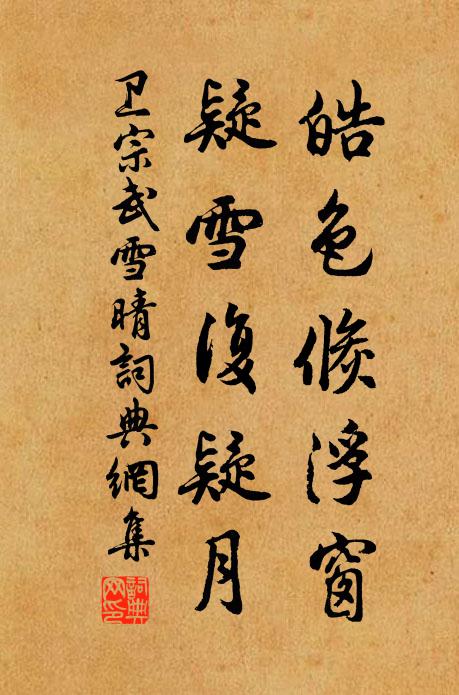 皓色倐浮窗
疑雪復疑月
卫宗武雪晴詞典網集
詞典网印